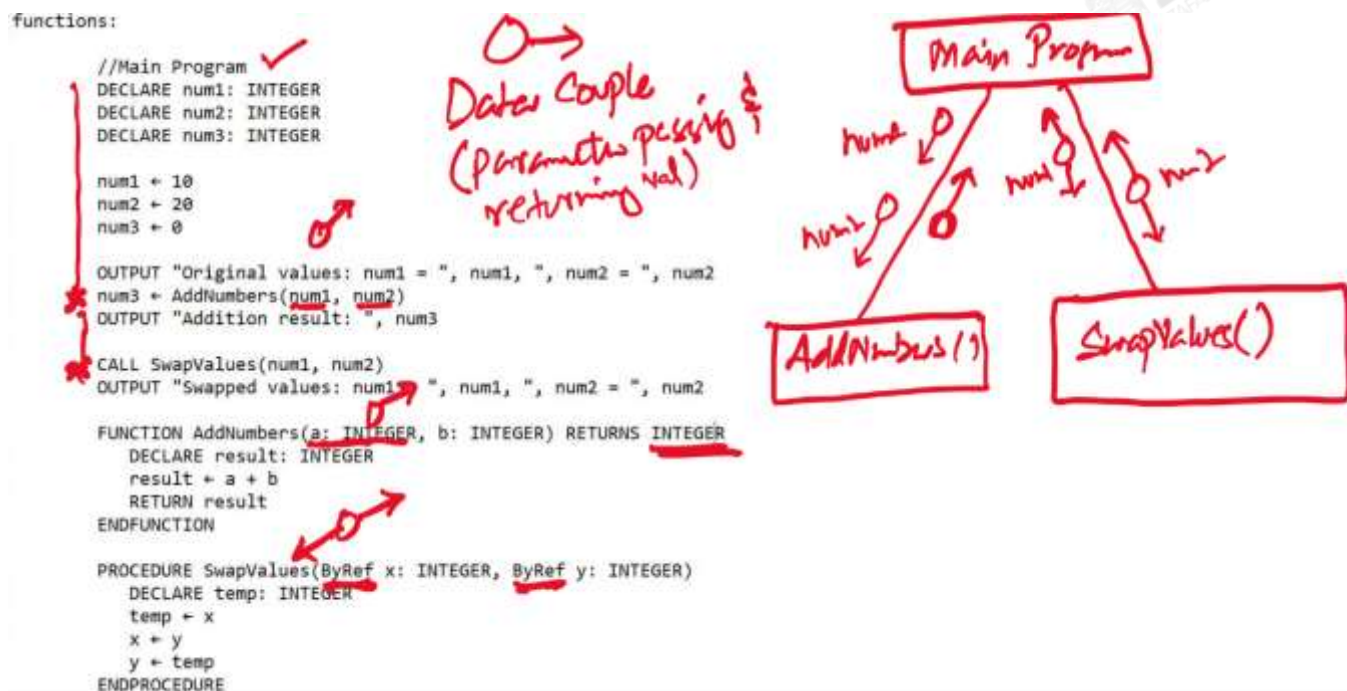 functions:
//Main Program
DECLARE num1: INTEGER
DECLARE num2: INTEGER
DECLARE num3: INTEGER
num1 ← 10
num2 ← 20
num3 ← 0
OUTPUT "Original values: num1 = ", num1, ", num2 = ", num2
num3 ← AddNumbers(num1, num2)
OUTPUT "Addition result: ", num3
CALL SwapValues(num1, num2)
OUTPUT "Swapped values: num1 ", num1, ", num2 = ", num2
FUNCTION AddNumbers(a: INTEGER, b: INTEGER) RETURNS INTEGER
DECLARE result: INTEGER
result ← a + b
RETURN result
ENDFUNCTION
PROCEDURE SwapValues(ByRef x: INTEGER, ByRef y: INTEGER)
DECLARE temp: INTEGER
temp ← x
x ← y
y ← temp
ENDPROCEDURE
Data Couple
(parameter passing &
returning val)
Main Program
num1
num2
AddNumbers()
SwapValues()